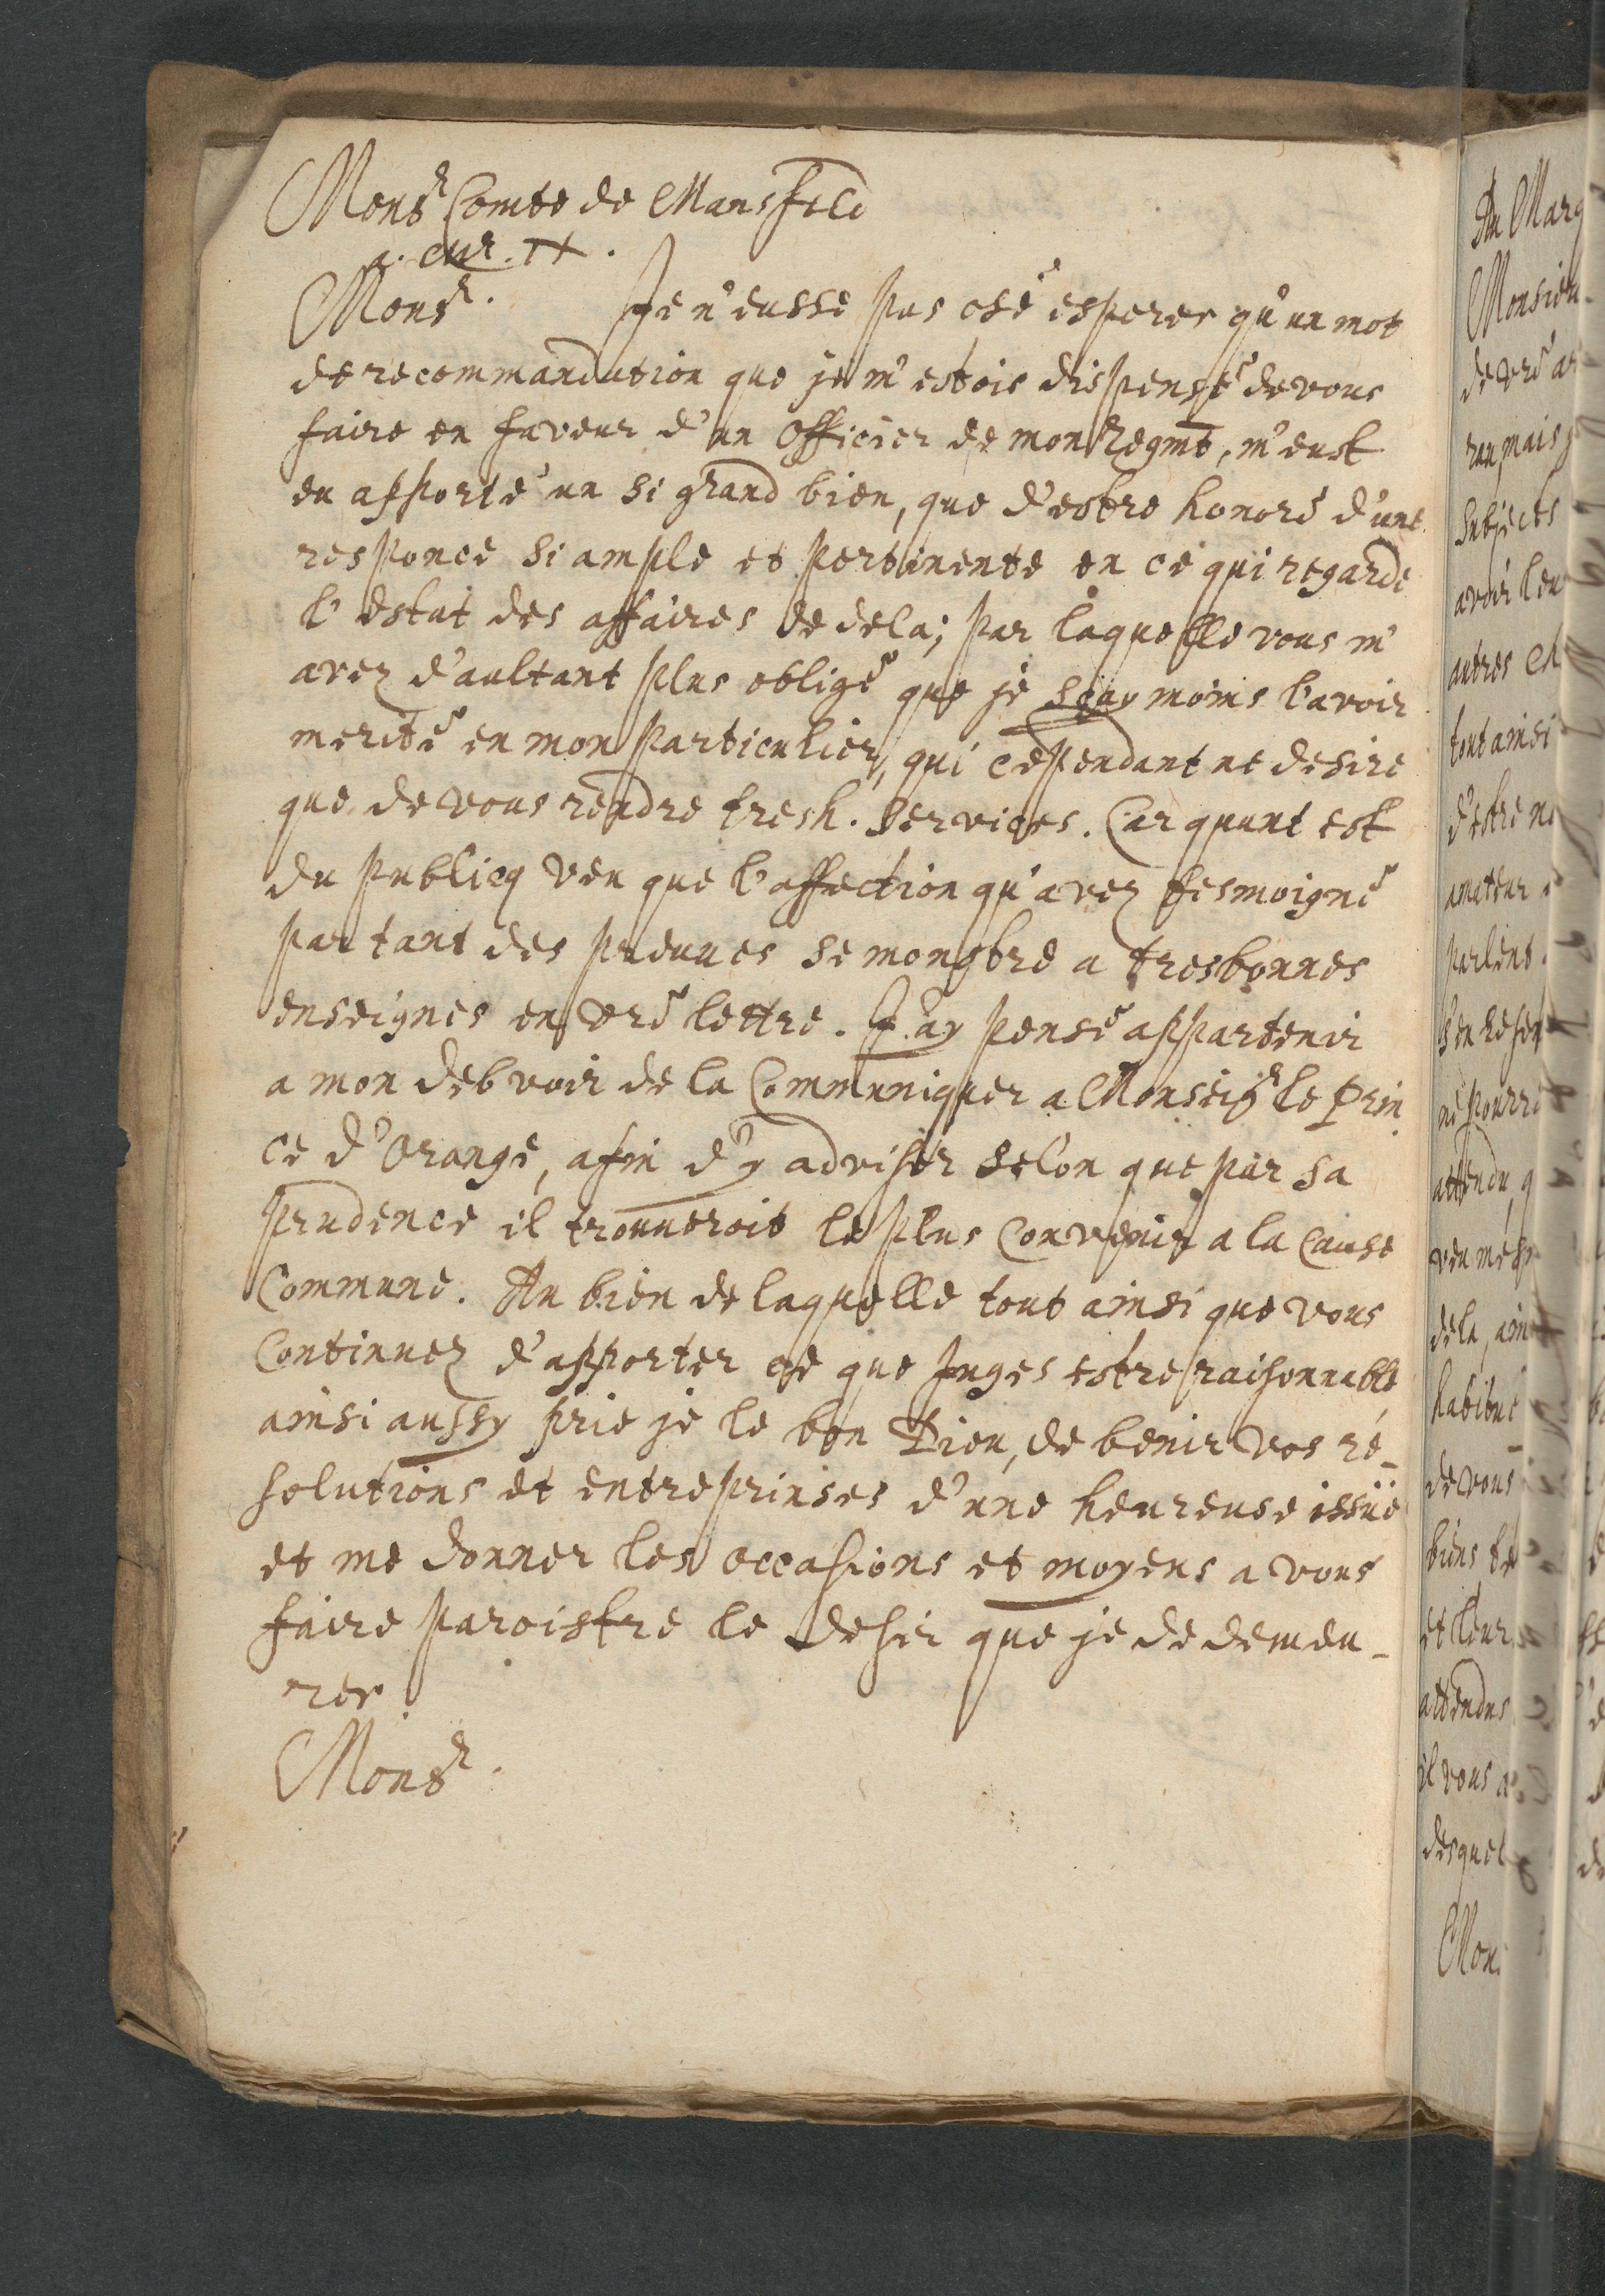 Monsr Comte de Mansfeld
Monsr. Je n'eusse pas osé esperer qu'un mot
de recommandation que je m'estois dispensé de vous
faire en faveur d'un Officier de mon Regmt, m'eust
eu apporté un si grand bien, que d'estre honoré d'une
responce si ample et pertinente en ce qui regarde
l'estat des affaires de dela; par laquelle vous m'
avez d'aultant plus obligé que je sçay moins l'avoir
merité en mon particulier, qui cependant ne desire
que de vous rendre tresh. services. Car quant est
du publicq veu que l'affection qu'avez tesmoigné
par tant des preuues se monstre a tresbonnes
enseignes en vrẽ lettre. J'ay pensé appartenir
a mon debvoir de la Communiquer a Monseigr le Prin
ce d'Orange, afin d'y adviser selon que par sa
prudence il trouueroit le plus Convenir a la Cause
Commune. Au bien de laquelle tout ainsi que vous
Continuez d'apporter ce que Juges estre raisonnable
ainsi aussy prie je le bon Dieu, de benir vos re_
solutions et entreprinses d'une heureuse issüe
et me donner les occasions et moyens a vous
faire paroistre le desir que je de demeu_
rer.
Monsr.
Du Marq
Monsieu
de vrẽ
mais
subjects
avoir leu
autres
tout ainsi
d'estre
amateur
parlent
s'en
ne pourr
attendu, q
veu
dela, ain
habitue
de vous
biens
et leur
attendus
il vous
desquel
Mon